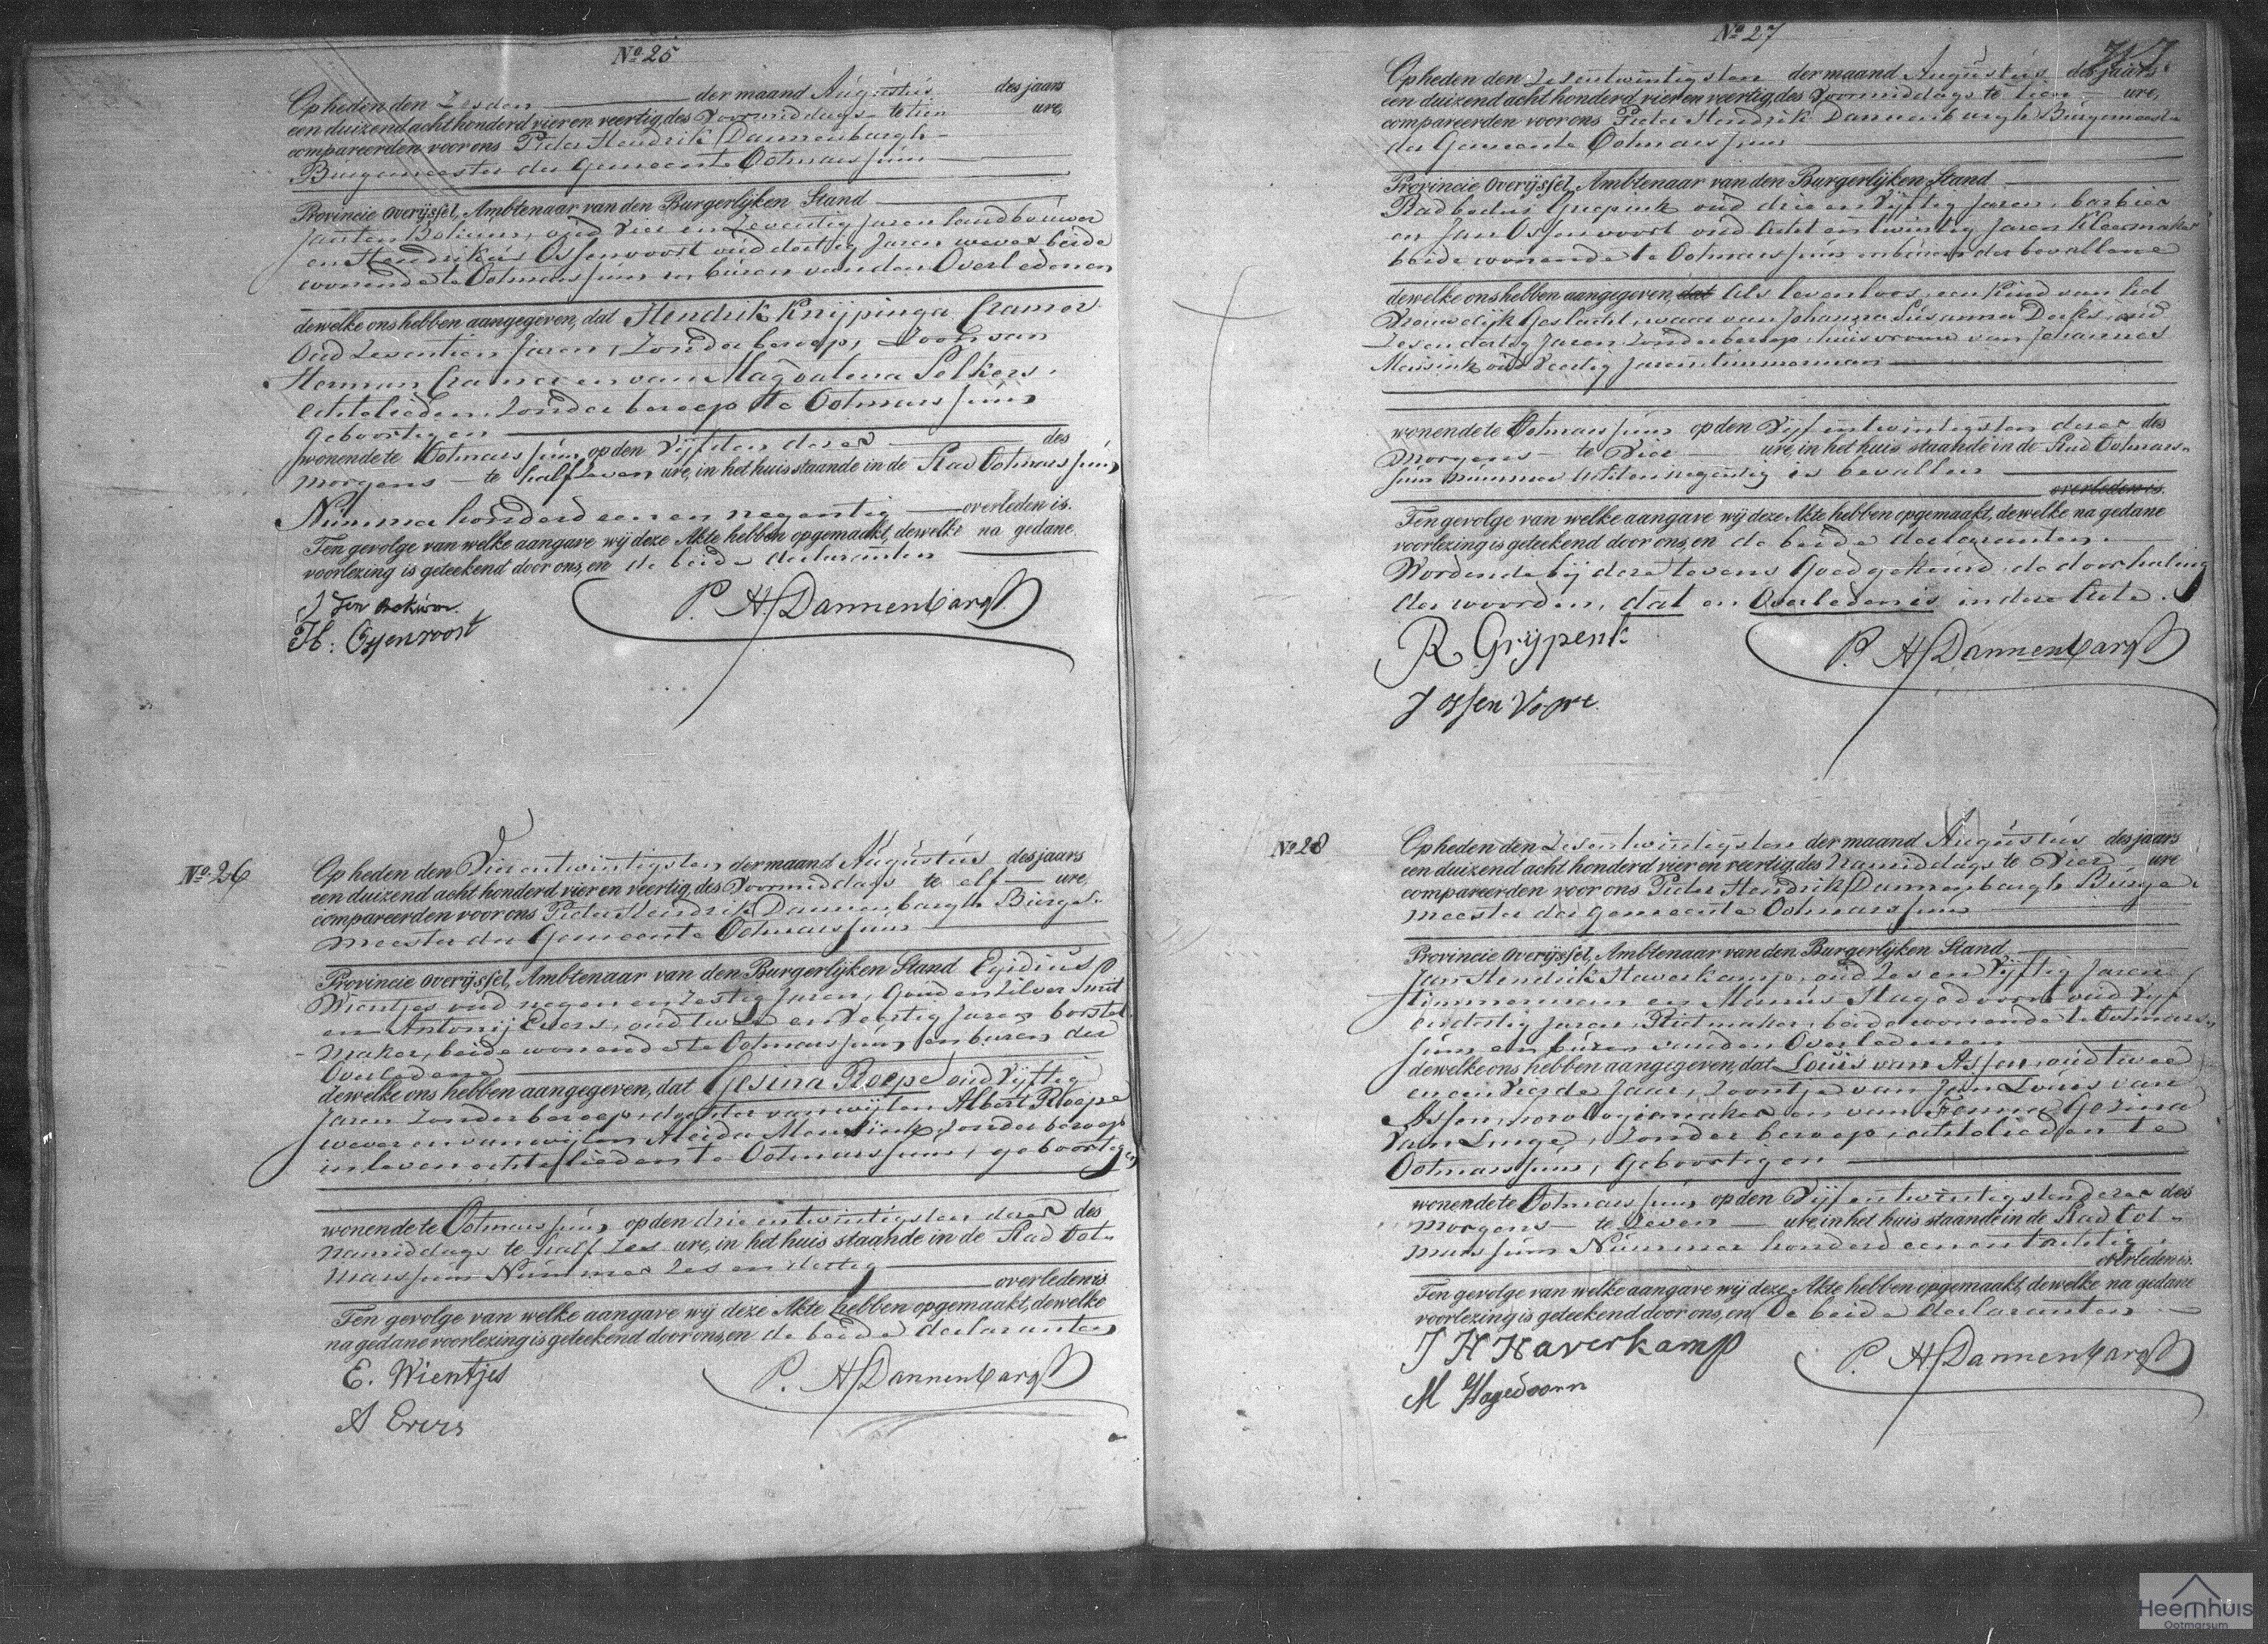 No 25
Op heden den Zesden der maand Augustus des jaars
een duizend acht honderd vier en veertig, des Voormiddags te tien ure,
compareerden voor ons Pieter Hendrik Dannenbargh
Burgemeester der Gemeente Ootmarssum
Provincie Overijssel, Ambtenaar van den Burgerlijken Stand
oud Vier en Zeventig Jaren landbouwer
en Hendrikus Ossenvoort oud dertig Jaren wever beide
wonende te Ootmarssum en buren van den Overledenen
dewelke ons hebben aangegeven, dat Hendrik Knijpinga Cramer
Oud Zeventien Jaren, Zonder beroep, Zoon van
Herman Cramer en van Magdalena Selkers,
echtelieden, Zonder beroep te Ootmarssum
geboortig en
wonende te Ootmarssum op den Vijfden dezer des
morgens te half Zeven ure, in het huis staande in de Stad Ootmarssum
Nummer honderd een en negentig overleden is.
Ten gevolge van welke aangave wij deze Akte hebben opgemaakt, dewelke na gedane
voorlezing is geteekend door ons, en de beide declaranten
H: Ossenvoort
P. H. Dannenbargh
No 26
Op heden den Vier entwintigsten der maand Augustus des jaars
een duizend acht honderd vier en veertig, des Voormiddags te elf ure,
compareerden voor ons Pieter Hendrik Dannenbargh Burge-
meester der Gemeente Ootmarssum
Provincie Overijssel, Ambtenaar van den Burgerlijken Stand Egidius
Wientjes oud negen en Zestig Jaren, Goud en Zilver Smit
en Antonij Evers, oud twee en Veertig Jaren borstel
maker, beide wonende te Ootmarssum en buren der
Overledene
dewelke ons hebben aangegeven, dat Gesina Roepe oud Vijftig
Jaren Zonder beroep, dochter van wijlen Albert Roepe
wever en van wijlen Aleida Mensink, Zonder beroep
in leven echtelieden te Ootmarssum, geboortig en
wonende te Ootmarssum op den drie entwintigsten dezer des
namiddags te half Zes ure, in het huis staande in de Stad Oot-
marssum Nummer Zes en dertig
overleden is
Ten gevolge van welke aangave wij deze Akte hebben opgemaakt, dewelke
na gedane voorlezing is geteekend door ons, en de beide declaranten
E. Wientjes
P. H. Dannenbargh
A Evers
No 27
Op heden den Zesentwintigsten der maand Augustus des jaars
een duizend acht honderd vier en veertig, des Voormiddags te tien ure,
compareerden voor ons Pieter Hendrik Dannenbargh Burgemeester
der Gemeente Ootmarssum
Provincie Overijssel, Ambtenaar van den Burgerlijken Stand
Radbodus Griepink oud drie en Vijftig Jaren, barbier
en Jan Ossenvoort oud acht entwintig Jaren Kleermaker
beide wonende te Ootmarssum en buren der bevallene
dewelke ons hebben aangegeven, dat Als levenloos, een kind van het
Vrouwelijk Geslacht, waar van Johanna Susanna Derks, oud
Zes en dertig Jaren Zonder beroep, huisvrouw van Johannes
Mensink oud Veertig Jaren timmerman
wonende te Ootmarssum op den Vijf entwintigsten dezer des
morgens te Vier ure, in het huis staande in de Stad Ootmars-
sum nummer achten negentig is bevallen
overleden is.
Ten gevolge van welke aangave wij deze Akte hebben opgemaakt, dewelke na gedane
voorlezing is geteekend door ons, en de beide declaranten.
Wordende bij deze tevens Goedgekeurd de doorhaling
der woorden, dat en Overleden is in deze Acte.
R Grijpenk
P. H. Dannenbargh
J Ossen Voort
No 28
Op heden den Zesentwintigsten der maand Augustus des jaars
een duizend acht honderd vier en veertig, des Namiddags te Vier ure
compareerden voor ons Pieter Hendrik Dannenbargh Burge-
meester der Gemeente Ootmarssum
Provincie Overijssel, Ambtenaar van den Burgerlijken Stand
Jan Hendrik Haverkamp, oud Zes en Vijftig Jaren
timmerman en Manus Hagedoorn oud Vijf
en dertig Jaren, Rietmaker, beide wonende te Ootmars-
sum en buren van den Overledenen
dewelke ons hebben aangegeven, dat Louis van Assen, oud twee
en een Vierde Jaar, Zoontje van Jan Louis van
Assen, horologiemaker en van Fenna Gezina
van Lingen, Zonder beroep, echtelieden te
Ootmarssum, Geboortig en
wonende te Ootmarssum op den Vijf entwintigsten dezer des
morgens te Zeven ure in het huis staande in de Stad Oot-
marssum Nummer honderd een en tachtig
overleden is.
Ten gevolge van welke aangave wij deze Akte hebben opgemaakt, dewelke na gedane
voorlezing is geteekend door ons, en De beide declaranten
J H Haverkamp
P. H. Dannenbargh
M Hagedoorn
Heemhuis
Ootmarsum